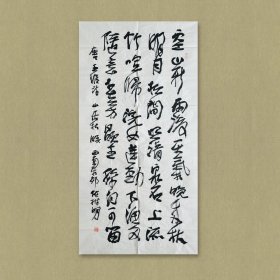 空山新雨後天氣晚来秋
明月松間照清泉石上流
竹喧歸浣女蓮動下漁舟
随意春芳歇王孫自可留
唐王維詩山居秋暝